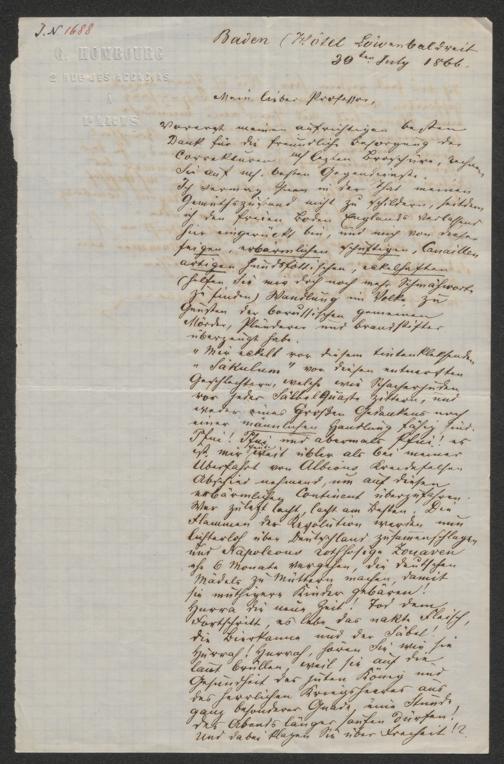 J.N 1688
G. HOMBOURG
2 RUE DES ACACIAS
A
PARIS
Baden (Hôtel Löwen Baldreit
30ten July 1866.
Mein lieber Professor,
Vorerst meinen aufrichtigen besten
Dank für die freundliche Besorgung der
Correkturen letzten Broschüre, rechnen
Sie auf besten Gegendienste.
Ich vermag Ihnen in der That meinen
Gemüthszustand nicht zu schildern, seitdem
ich den freien Boden Englands verlassen
hier eingerückt bin, und mich von dieser
feigen, erbärmlichen schuftigen, Canaillen
artigen hundsföttischen, eckelhaften
(helfen Sie mir doch noch mehr Schmähworte
zu finden) Wandlung im Volke zu
Gunsten der borussischen gemeinen
Mörder, Plünderer und Brandstifter
überzeugt habe.
"Mir eckelt vor diesem tintenklecksenden
"Säkulum" vor diesen entnervten
Geschlechtern, welche wie Schacherjuden
vor jeder Säbelquaste zittern, und
weder eines Großen Gedankens noch
einer männlichen Handlung fähig sind.
Pfui! Pfui und abermals Pfui! es
ist mir heute weit übler als bei meiner
Überfahrt von Albions Kreidefelsen
Abschied nehmend, um auf diesen
erbärmlichen Continent überzufahren.
Wer zuletzt lacht, lacht am Besten. Die
Flammen der Revolution werden nun
lichterloh über Deutschland zusammenschlagen
und Napoleons rothhosige Zouaven
ehe 6 Monate vergehen, die deutschen
Mädels zu Müttern machen, damit
sie muthigere Kinder gebären!
Hurra die neue Zeit! Tod dem
Fortschritt, es lebe das nakte Fleisch,
die Bierkanne und der Säbel!
Hurrah! Hurrah, hören Sie wie sie
laut brüllen, weil sie auf die
Gesundheit des guten König und
des herrlichen Kriegsheeres aus
ganz besonderer Gnade, eine Stunde
des Abends länger saufen dürfen!
Und dabei klagen Sie über Freiheit!?